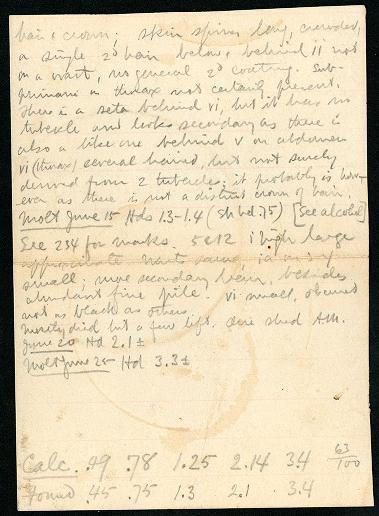 hair & crown; skin spines long, crowded,
a single 2d hair below & behind II not
on a wart, no general 2d coating. Sub-
primaries on thorax not certainly present.
There is a seta behind vi, but it has no
tubercle and looks secondary as there is
also a like one behind v on abdomen
vi (thorax) several haired, but not surely
derived from 2 tubercles; it probably is how-
ever as there is not a distinct crown of hair.
Molt June 15 Hds 1.3-1.4 (sh bd .75) [See alcohol]
See 234 for marks. i high large
small; more secondary hair, besides
abundant fine pile. vi small, obscured
not as black as others
Mostly died but a few left. One shed AM.
June 20 Hd 2.1±
Molt June 25 Hd 3.3±
Calc. .49 .78 1.25 2.14 3.4 63/100
Found .45 .75 1.3 2.1 3.4